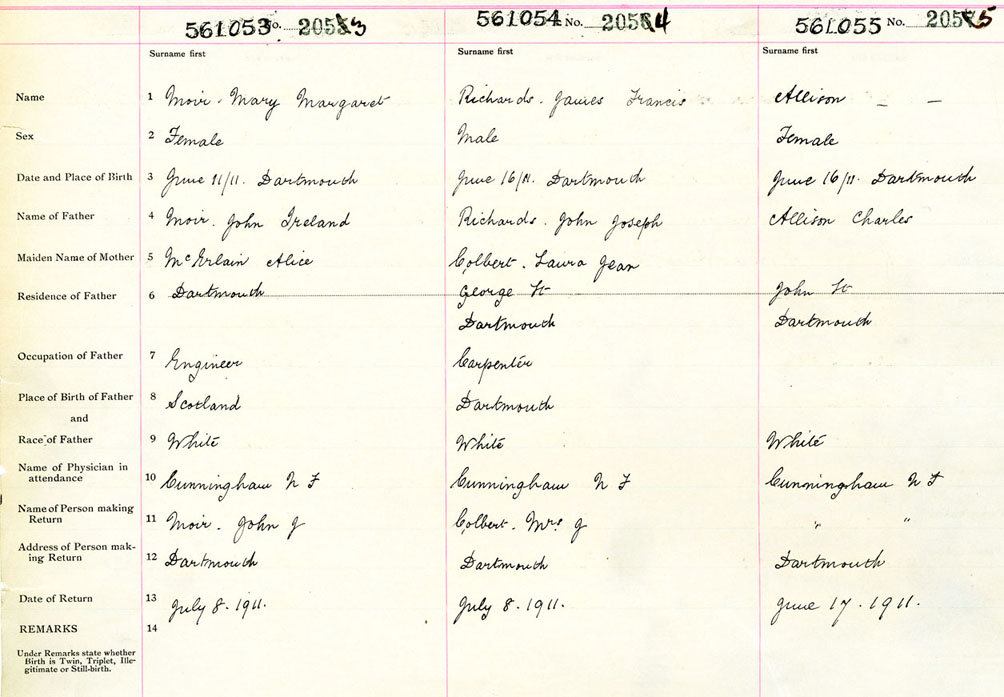 561053 No. 20583 561054 No. 20584 561055 No. 20585
Surname first Surname first Surname first
Name 1 Moir. Mary Margaret Richards. James Francis Allison — —
Sex 2 Female Male Female
Date and Place of Birth 3 June 11/11. Dartmouth June 16/11. Dartmouth June 16/11. Dartmouth
Name of Father 4 Moir. John Ireland Richards. John Joseph Allison Charles
Maiden Name of Mother 5 McErlain Alice Colbert. Laura Jean
Residence of Father 6 Dartmouth George St John St
Dartmouth Dartmouth
Occupation of Father 7 Engineer Carpenter
Place of Birth of Father 8 Scotland Dartmouth
and
Race of Father 9 White White White
Name of Physician in
attendance 10 Cunningham N F Cunningham N F Cunningham N F
Name of Person making
Return 11 Moir. John J Colbert. Mrs J " "
Address of Person mak-
ing Return 12 Dartmouth Dartmouth Dartmouth
Date of Return 13 July 8. 1911. July 8. 1911. June 17. 1911.
REMARKS 14
Under Remarks state whether
Birth is Twin, Triplet, Ille-
gitimate or Still-birth.